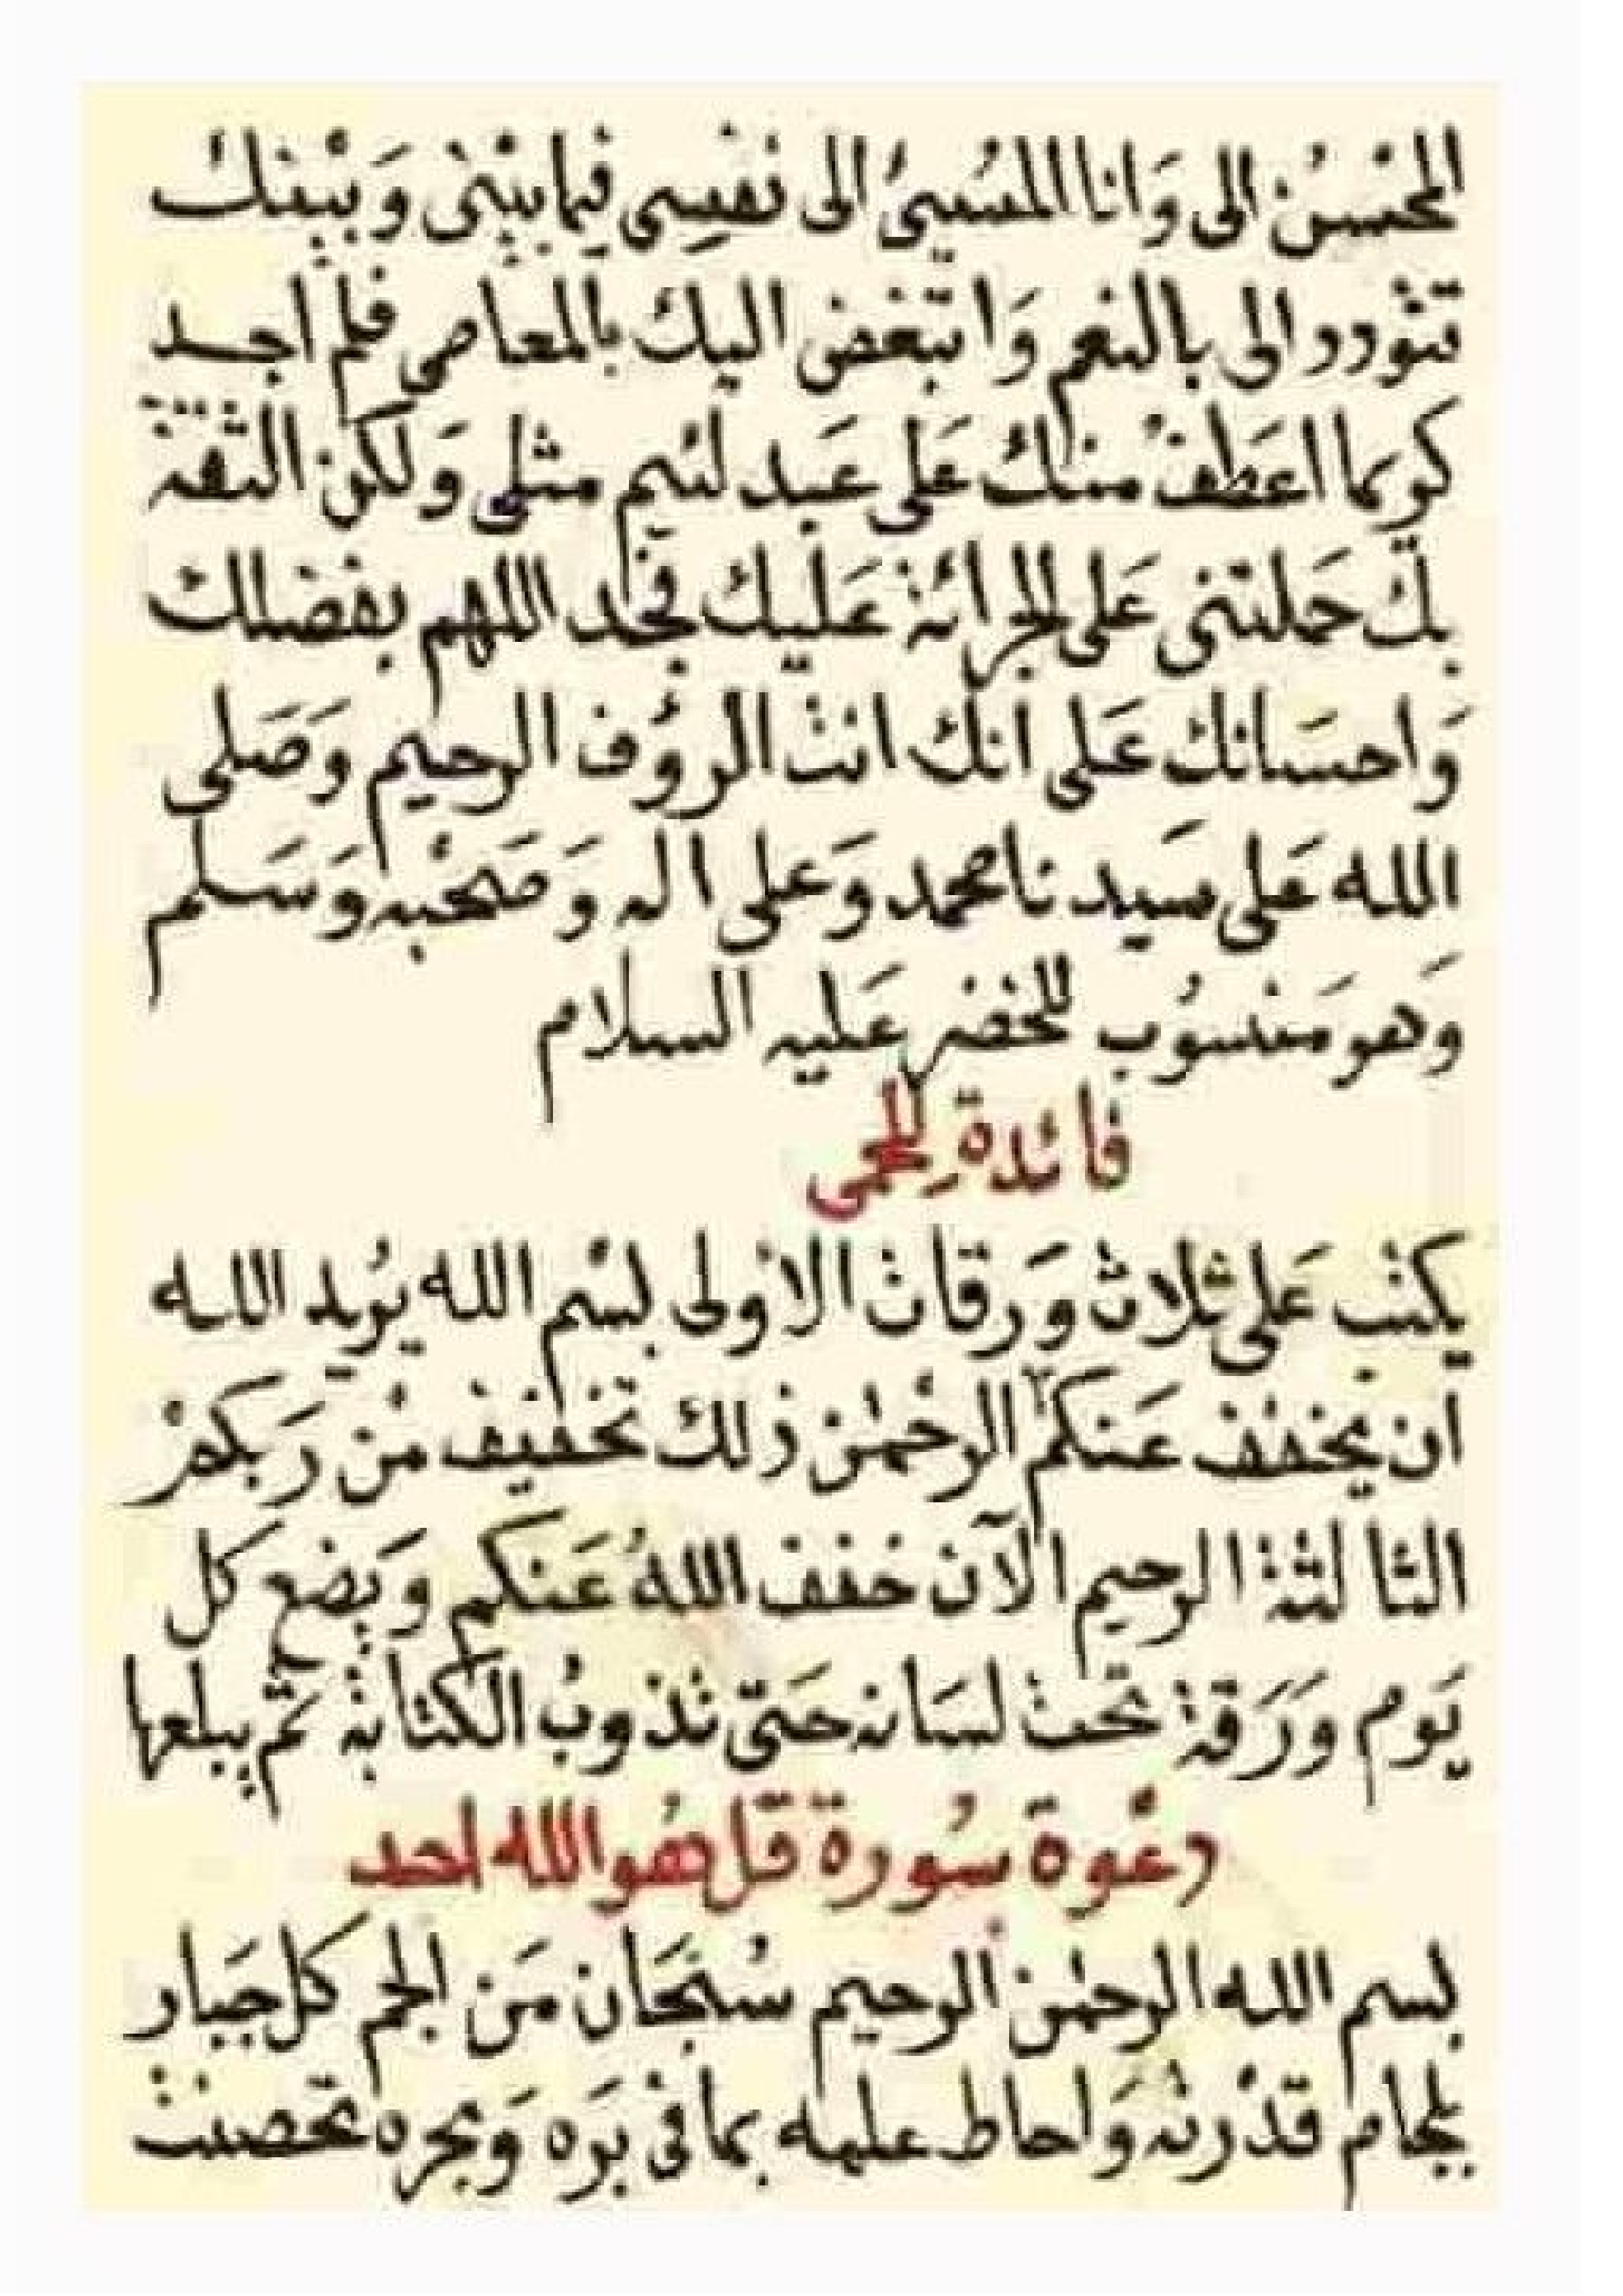 المحْسنُ الى وَانا المسُيئُ الى نفسِى فيما بيْنى وَبيْنك
تتودد الى بالنعم وَاتبغض اليك بالمعاصى فلم اجد
كريما اعَطفُ منك عَلى عَبد لئيم مثلى وَلكن الثقة
بك حَملتنى عَلى الجرائة عَليك فجد اللهم بفضلك
وَاحسَانك عَلى انك انت الرؤف الرحيم وَصَلى
الله عَلى سَيدنا محمد وَعلى اله وَصَحْبه وَسَلم
وَهو مَنسوُب للخضر عَليه السلام
فائدة لِلحمى
يكتب عَلى ثلاث وَرقات الاولى بسْم الله يرُيد الله
ان يخفف عَنكم الرحْمن ذلك تخفيف منْ رَبكمْ
الثالثة الرحيم الآن خفف اللهُ عَنكم وَيضع كل
يَوم وَرَقة تحت لسَانه حَتى تذوبُ الكتابة ثم يبلعها
دعْوة سُورة قل هُو الله احد
بسم الله الرحمن الرحيم سُبْحَان مَن الجم كل جبَار
بلجام قدْرته وَاحاط علمه بما فى برَه وَبحره تحصنت